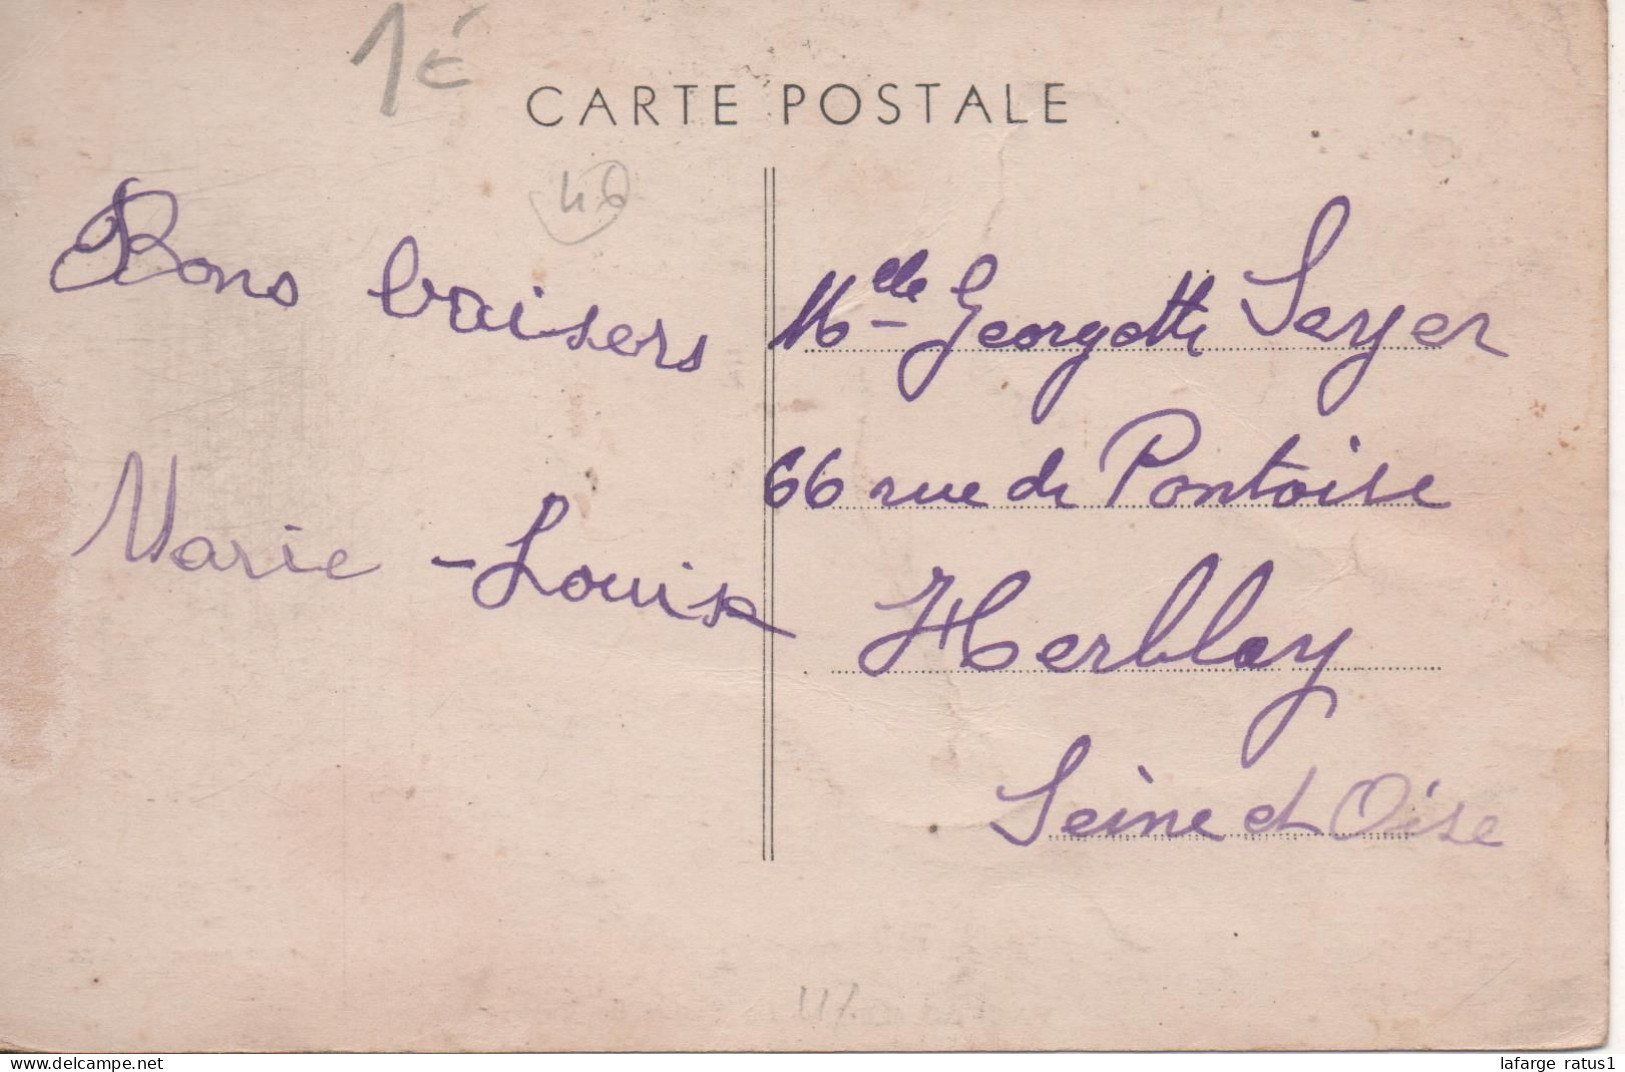 1 €
CARTE POSTALE
46
Bons baisers
Marie - Louise
Melle Georgette Seyer
66 rue de Pontoise
Herblay
Seine et Oise
delcampe.net
lafarge_ratus1